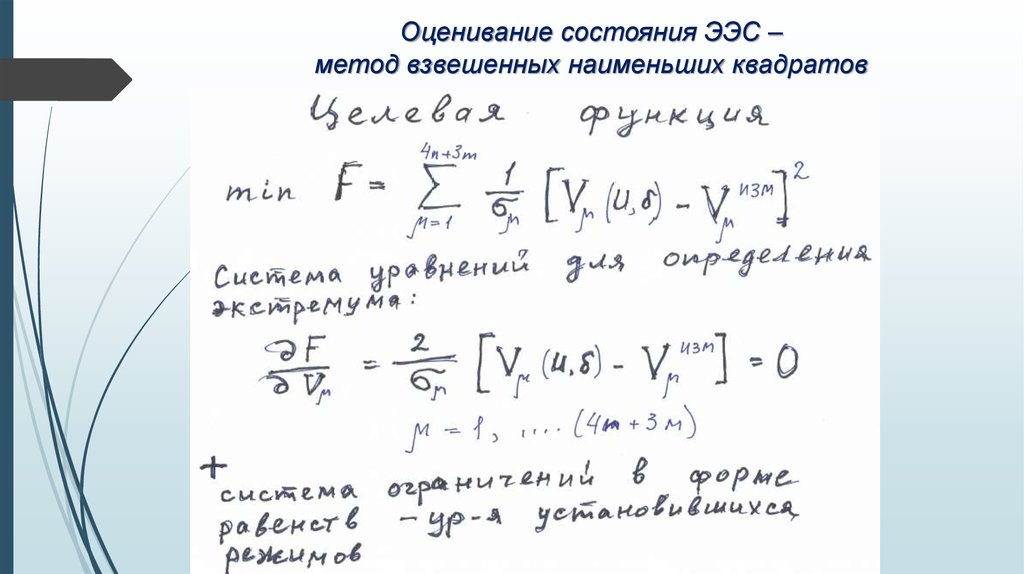 Оценивание состояния ЭЭС –
метод взвешенных наименьших квадратов
Целевая функция
min F = 4n+3m ∑ μ=1 1/σμ [Vμ (U,δ) - Vμ изм]2
Система уравнений для определения
экстремума:
∂F/∂Vμ = 2/σμ [Vμ (U,δ) - Vμ изм] = 0
μ = 1, .... (4m + 3м)
+
система ограничений в форме
равенств – ур-я установившихся
режимов